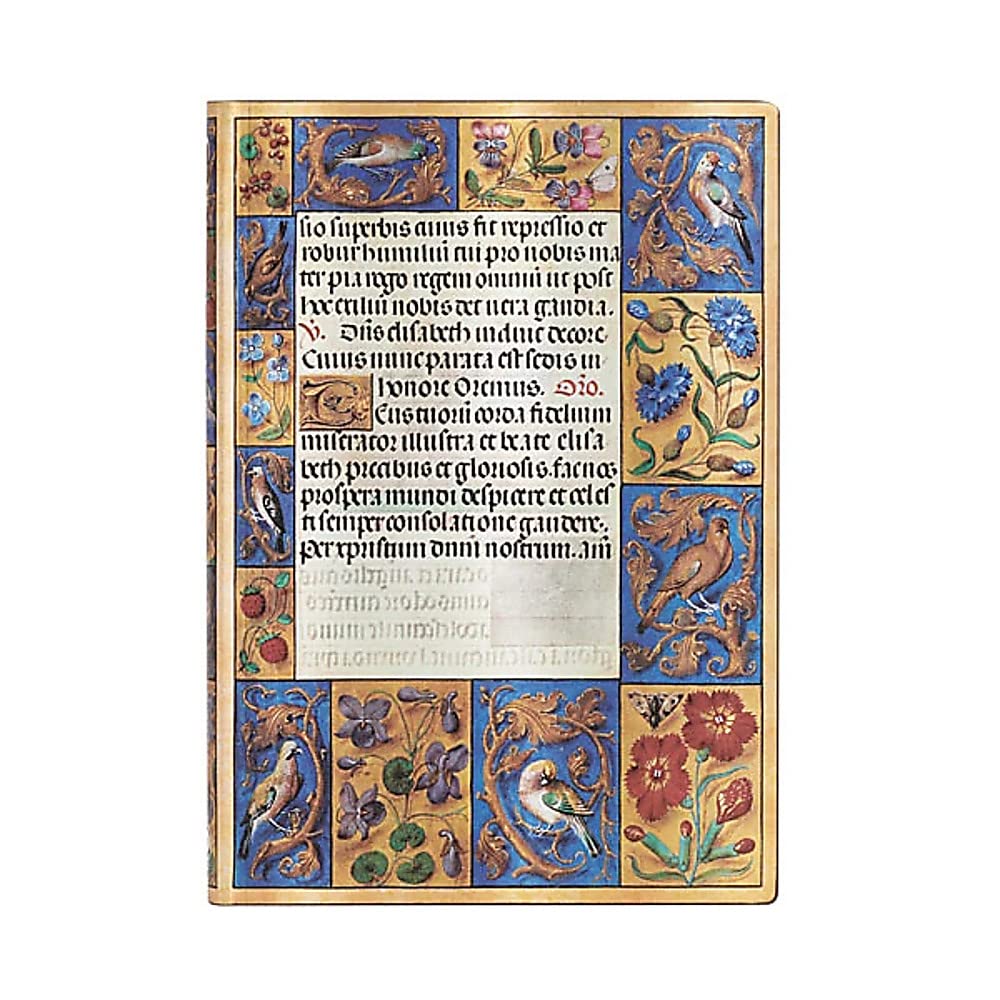 sio superbis cuius fit repressio et
robur humiliū cui pro nobis ma
ter pia rogo regem omniū ut post
hoc exiliū nobis det vera gaudia.
V. Dn̄s elisabeth induit decore
Cuius nunc parata est sedis in
honore Oremus. Or̄o.
DEus tuorū corda fidelium
miserator illustra et beate elisa
beth precibus et gloriosis. fac nos
prospera mundi despicere et celes
ti semper consolatione gaudere.
Per xpristum dnm̄ nostrum. am̄